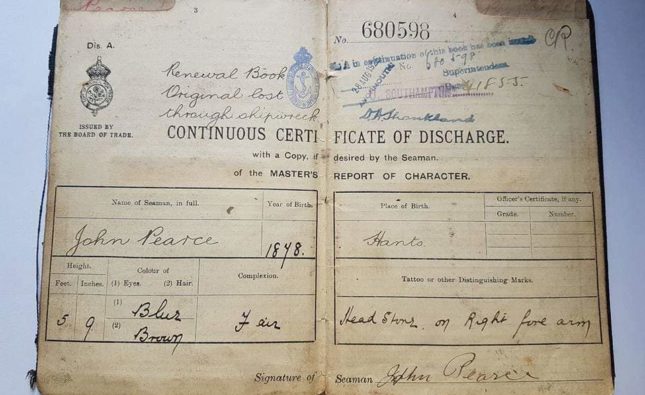 Pearce
3
Dis. A.
ISSUED BY
THE BOARD OF TRADE.
Renewal Book
Original lost
through shipwreck
CONTINUOUS CERTI
with a Copy, if
of the MASTER'S
Name of Seaman, in full.
Year of Birth.
John Pearce
1878.
Height.
Colour of
Complexion.
Feet.
Inches.
(1) Eyes.
(2) Hair.
5
9
(1)
Blue
(2)
Brown
Fair
Signature of
4
No. 680598
C/R
A in continuation of this book has been issued
No. 680598
Superintendent
SOUTHAMPTON
FICATE OF DISCHARGE.
desired by the Seaman.
REPORT OF CHARACTER.
Place of Birth.
Officer's Certificate, if any.
Grade.
Number.
Hants.
Tattoo or other Distinguishing Marks.
Head Stone on Right fore arm
Seaman John Pearce